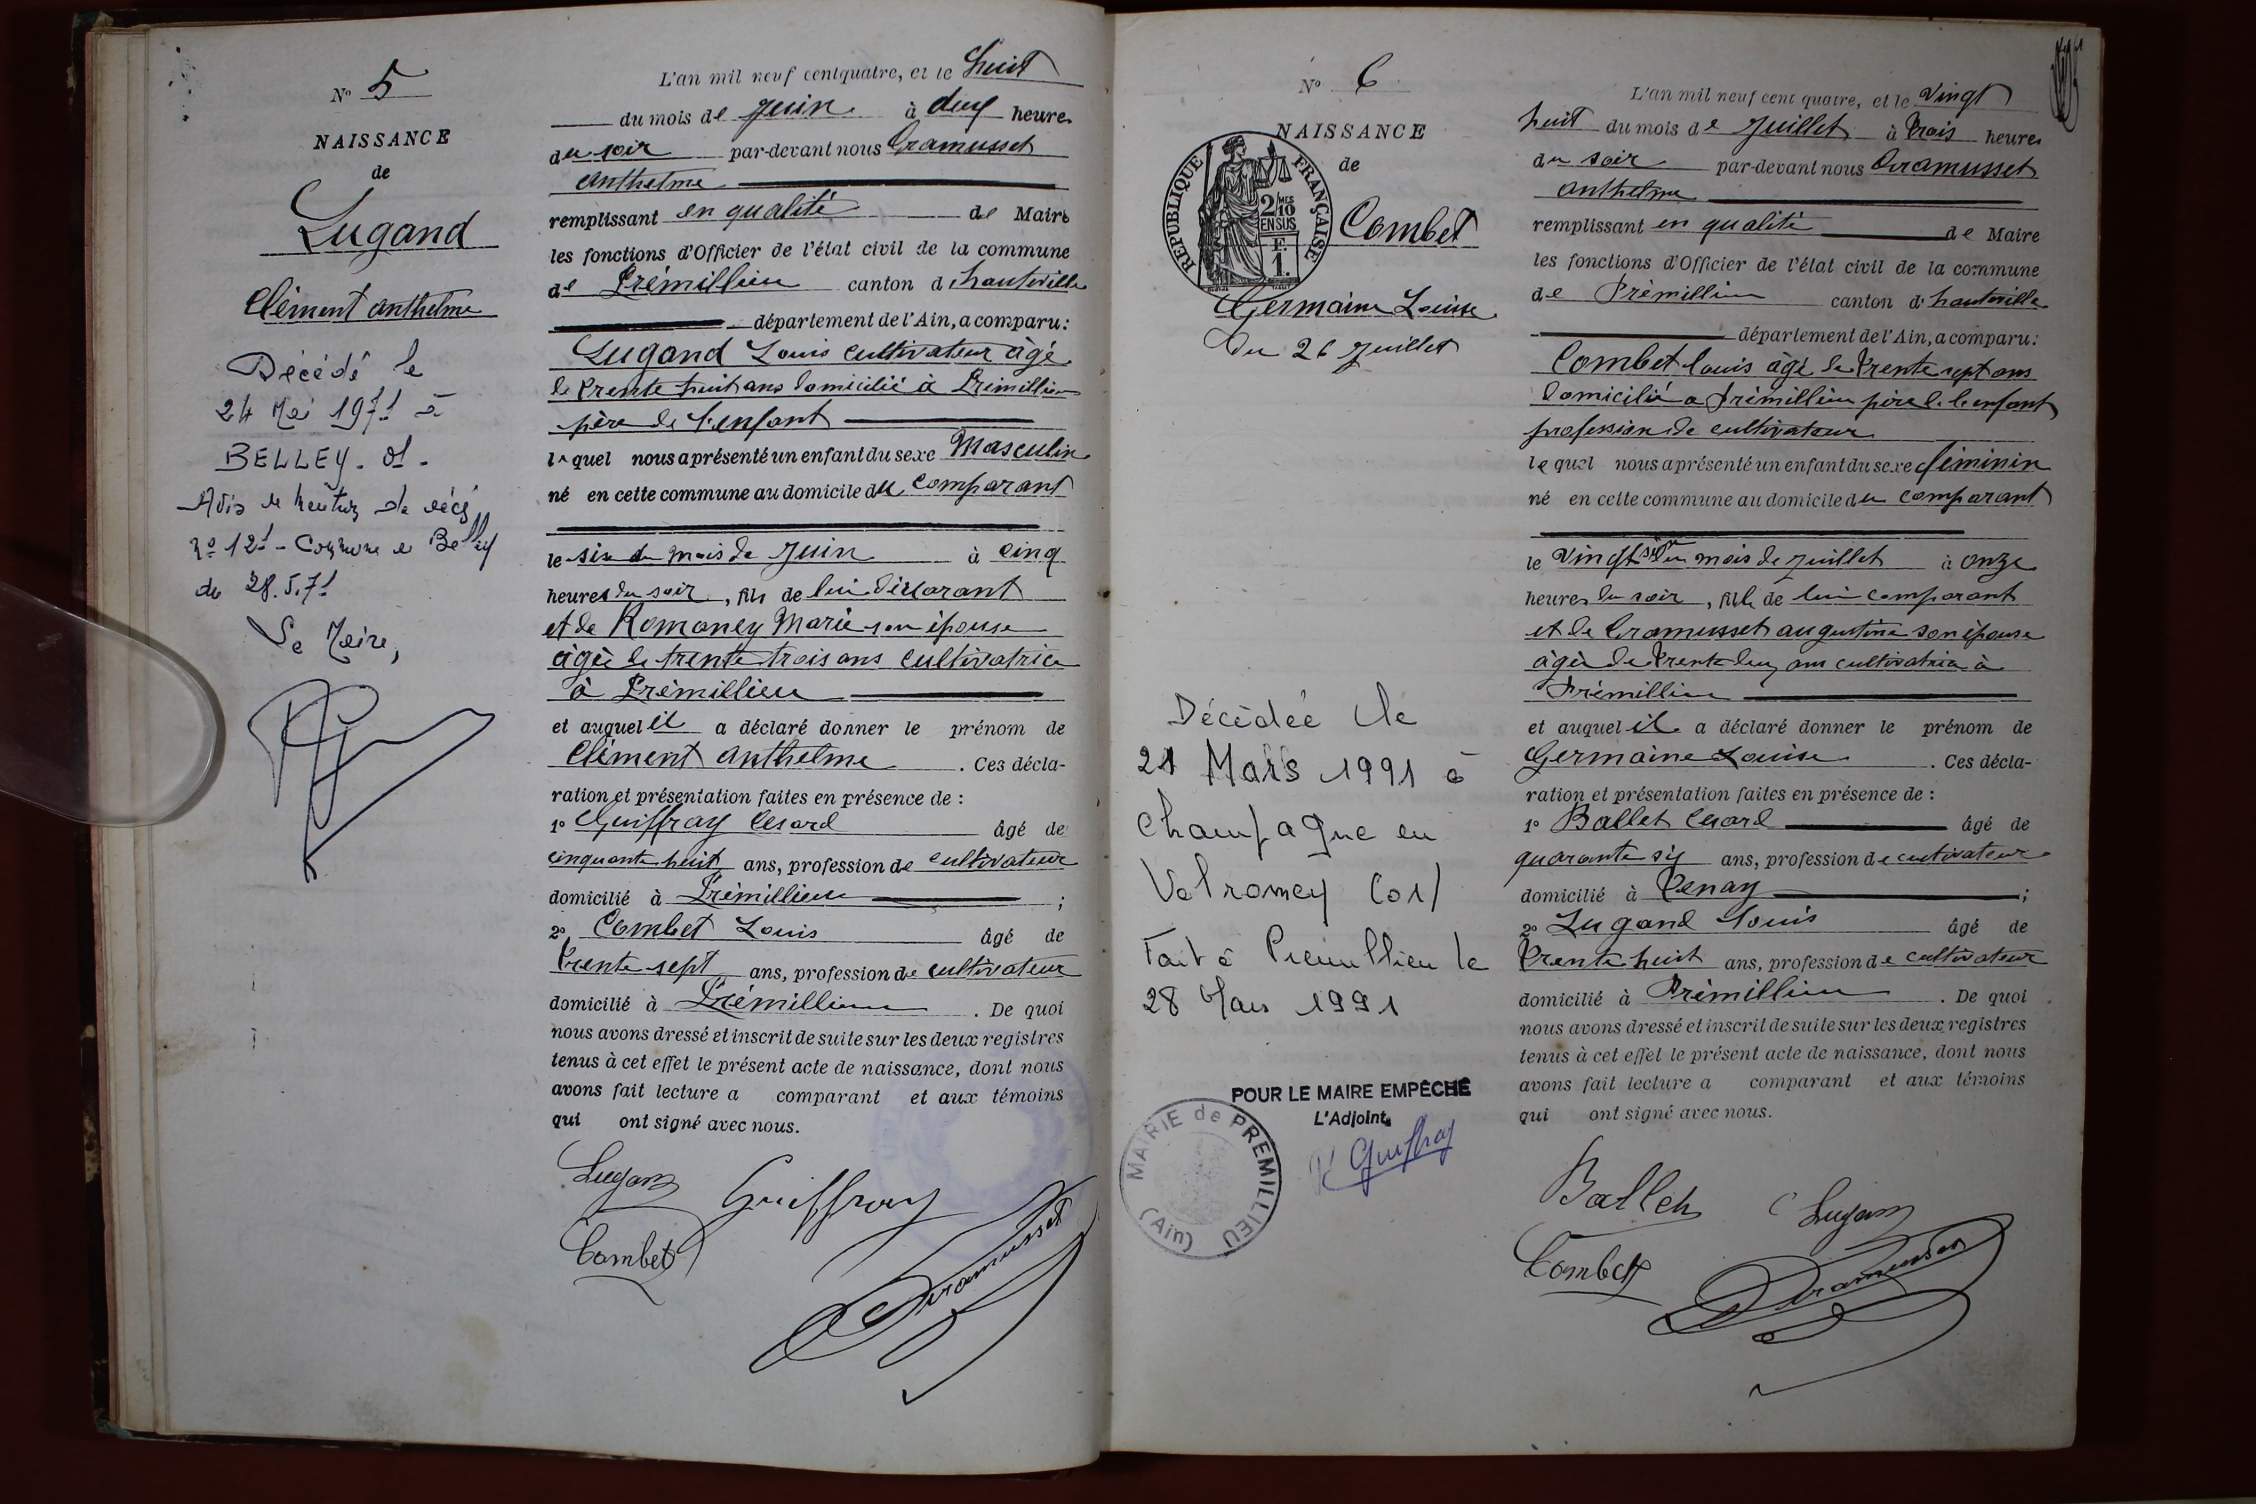 N° 5
NAISSANCE
de
Lugand
Clément Anthelme
Décédé le
24 Mai 1971 à
BELLEY. 01.
Avis de
n° 121 - Commune de Belley
du 28.5.71
Le Maire,
L'an mil neuf cent quatre, et le huit
du mois de Juin à deux heures
du soir par-devant nous Tramusset
Anthelme
remplissant en qualité de Maire
les fonctions d'Officier de l'état civil de la commune
de Prémillieu canton d'hauteville
département de l'Ain, a comparu :
Lugand Louis cultivateur âgé
de trente huit ans domicilié à Prémillieu
père de l'enfant
lequel nous a présenté un enfant du sexe Masculin
né en cette commune au domicile du comparant
le six du mois de Juin à cinq
heures du soir, fils de lui déclarant
et de Romaney Marie son épouse
âgée de trente trois ans cultivatrice
à Prémillieu
et auquel il a déclaré donner le prénom de
Clément Anthelme . Ces décla-
ration et présentation faites en présence de :
1° Guiffray César âgé de
cinquante huit ans, profession de cultivateur
domicilié à Prémillieu ;
2° Combet Louis âgé de
trente sept ans, profession de cultivateur
domicilié à Prémillieu . De quoi
nous avons dressé et inscrit de suite sur les deux registres
tenus à cet effet le présent acte de naissance, dont nous
avons fait lecture a comparant et aux témoins
qui ont signé avec nous.
Lugand Guiffray
Combet Tramusset
N° 6
NAISSANCE
de
REPUBLIQUE FRANÇAISE
2/10 MES
EN SUS
F.
1.
Combet
Germaine Louise
Du 26 Juillet
Décédée le
21 Mars 1991 à
Champagne en
Valromey (01)
Fait à Prémillieu le
28 Mars 1991
POUR LE MAIRE EMPÊCHÉ
L'Adjoint,
Guiffray
MAIRIE de PRÉMILLIEU
(Ain)
L'an mil neuf cent quatre, et le vingt
huit du mois de Juillet à trois heures
du soir par-devant nous Tramusset
Anthelme
remplissant en qualité de Maire
les fonctions d'Officier de l'état civil de la commune
de Prémillieu canton d'hauteville
département de l'Ain, a comparu :
Combet Louis âgé de trente sept ans
domicilié à Prémillieu père de l'enfant
profession de cultivateur
lequel nous a présenté un enfant du sexe féminin
né en cette commune au domicile du comparant
le vingt six du mois de juillet à onze
heures du soir, fille de lui comparant
et de Tramusset augustine son épouse
âgée de trente deux ans cultivatrice à
Prémillieu
et auquel il a déclaré donner le prénom de
Germaine Louise . Ces décla-
ration et présentation faites en présence de :
1° Ballet César âgé de
quarante six ans, profession de cultivateur
domicilié à Tenay ;
2° Lugand Louis âgé de
trente huit ans, profession de cultivateur
domicilié à Prémillieu . De quoi
nous avons dressé et inscrit de suite sur les deux registres
tenus à cet effet le présent acte de naissance, dont nous
avons fait lecture a comparant et aux témoins
qui ont signé avec nous.
Ballet Lugand
Combet Tramusset